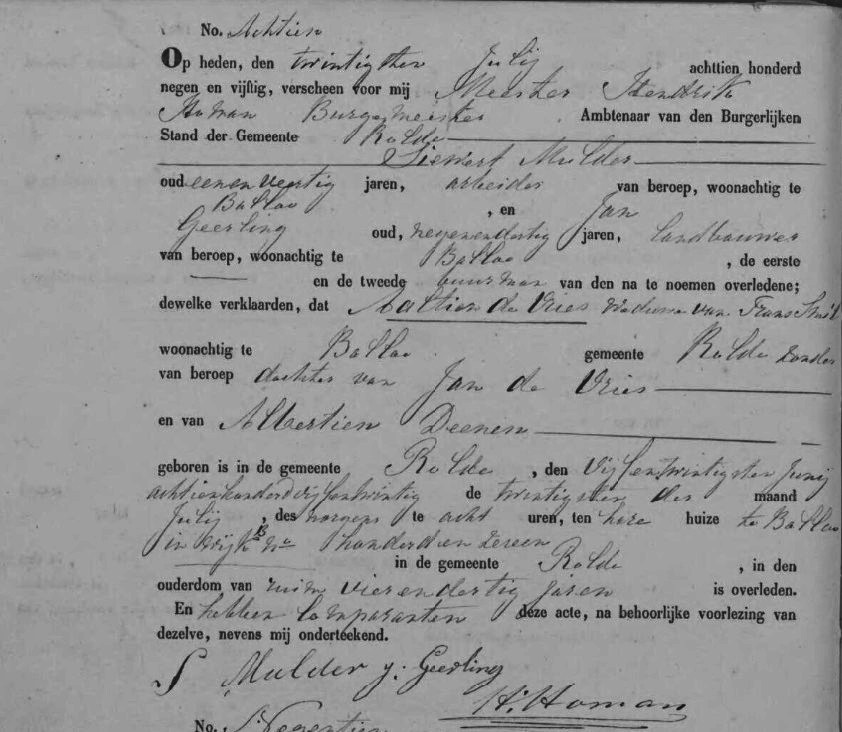 No. Achtien
Op heden, den twintigsten Julij achttien honderd
negen en vijftig, verscheen voor mij Meester Hendrik
Homan Burgemeister Ambtenaar van den Burgerlijken
Stand der Gemeente Rolde
Siewert Mulder
oud eenenveertig jaren, arbeider van beroep, woonachtig te
Balloo , en Jan
Geerling oud, negenendertig jaren, landbouwer
van beroep, woonachtig te Balloo , de eerste
en de tweede buurman van den na te noemen overledene;
dewelke verklaarden, dat Aaltien de Vries weduwe van Frans Smit
woonachtig te Balloo gemeente Rolde zonder
van beroep dochter van Jan de Vries
en van Albertien Deenen
geboren is in de gemeente Rolde , den vijfentwintigsten Junij
achtienhonderdvijfentwintig de twintigsten der maand
Julij , des morgens te acht uren, ten hare huize te Balloo
in wijk B no honderdenzeven
in de gemeente Rolde , in den
ouderdom van ruim vierendertig jaren is overleden.
En hebben Comparanten deze acte, na behoorlijke voorlezing van
dezelve, nevens mij onderteekend.
S Mulder J. Geerling
H. Homan
No. Negentien